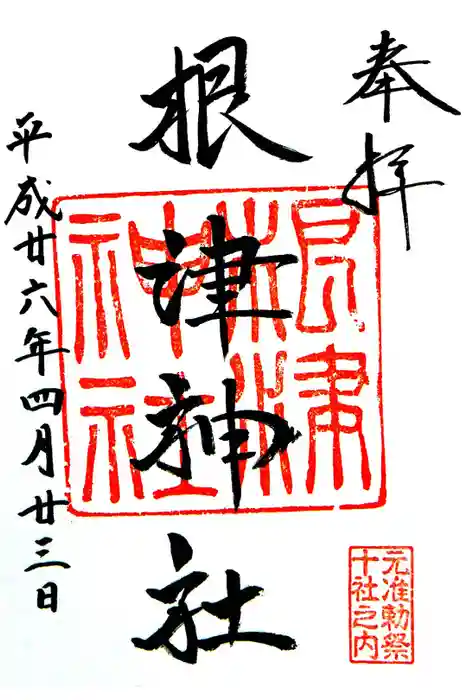 奉拝
根津神社
根津神社
平成廿六年四月廿三日
元准勅祭
十社之内